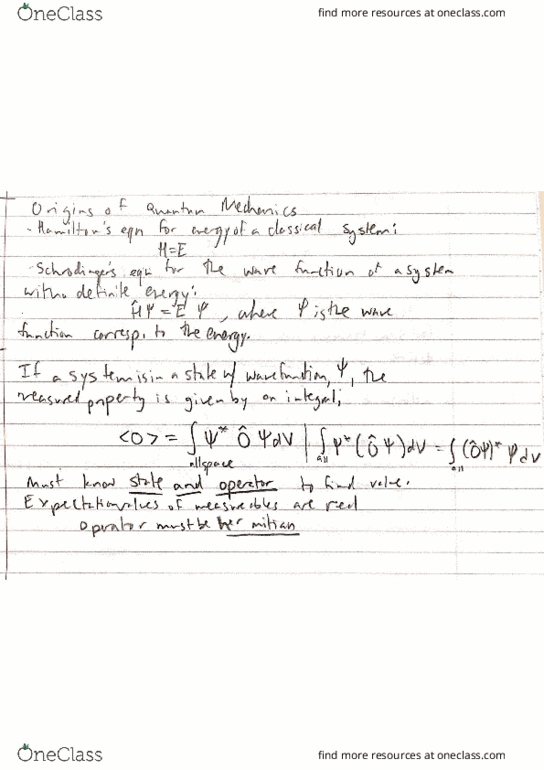 OneClass
find more resources at oneclass.com
Origins of Quantum Mechanics
- Hamilton's eqn for energy of a classical system:
H=E
- Schrodinger's eqn for the wave function of a system
with a definite energy:
ĤΨ = EΨ, where Ψ is the wave
function corresp. to the energy.
If a system is in a state w/ wavefunction, Ψ, the
measured property is given by an integral;
<O> = ∫ Ψ* Ô Ψ dV | ∫ Ψ* (ÔΨ) dV = ∫ (ÔΨ)* Ψ dV
all space all all
Must know state and operator to find value.
Expectation values of measureables are real
Operator must be hermitian
OneClass
find more resources at oneclass.com